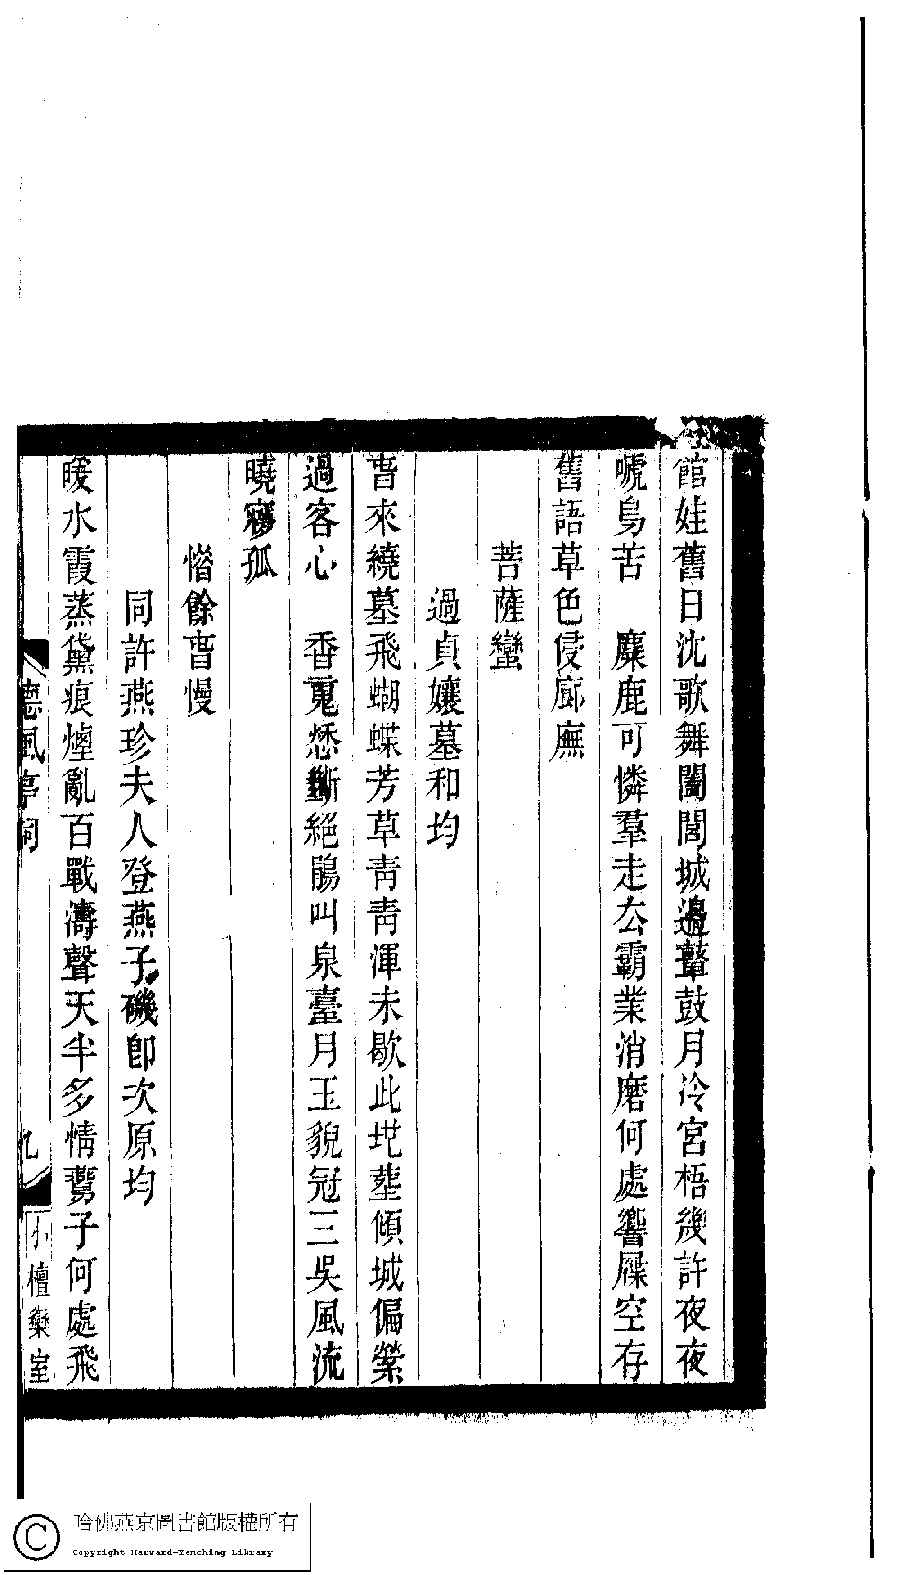 館娃舊日沈歌舞闔閭城邊鼙鼓月冷宮梧幾許夜夜
嗁烏苦　麋鹿可憐羣走厺霸業消磨何處響屧空存
舊語草色侵廊廡
菩薩蠻
過貞孃墓和均
旹來繞墓飛蝴蝶芳草靑靑渾未歇此地葬傾城偏縈
過客心　香䰟愁斷絕鵑叫泉臺月玉貌冠三吳風流
曉寢孤
惜餘旹慢
同許燕珍夫人登燕子磯卽次原均
暖水霞蒸黛痕煙亂百戰濤聲天半多情鷰子何處飛
德風亭詞
九
小檀欒室
哈佛燕京圖書館版權所有
Copyright Harvard-Yenching Library